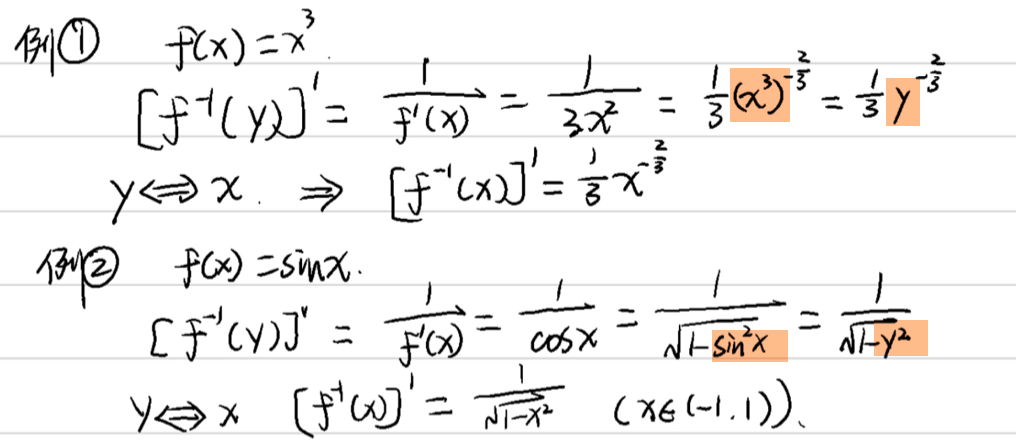 例① f(x)=x³.
[f⁻¹(y)]' = 1/f'(x) = 1/3x² = 1/3(x³)^(-2/3) = 1/3 y^(-2/3)
y⇔x. ⇒ [f⁻¹(x)]' = 1/3 x^(-2/3)
例② f(x)=sinx.
[f⁻¹(y)]' = 1/f'(x) = 1/cosx = 1/√(1-sin²x) = 1/√(1-y²)
y⇔x [f⁻¹(x)]' = 1/√(1-x²) (x∈(-1,1)).